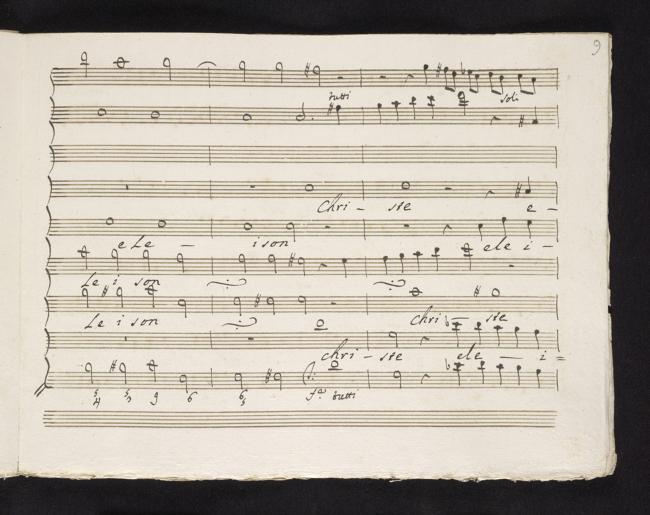 9
tutti soli
Chri - ste e -
eLe - ison ele i -
Le i son
Le i son chri - ste
chri - ste ele - i =
5 5 9 6 6 tutti
4 3 5